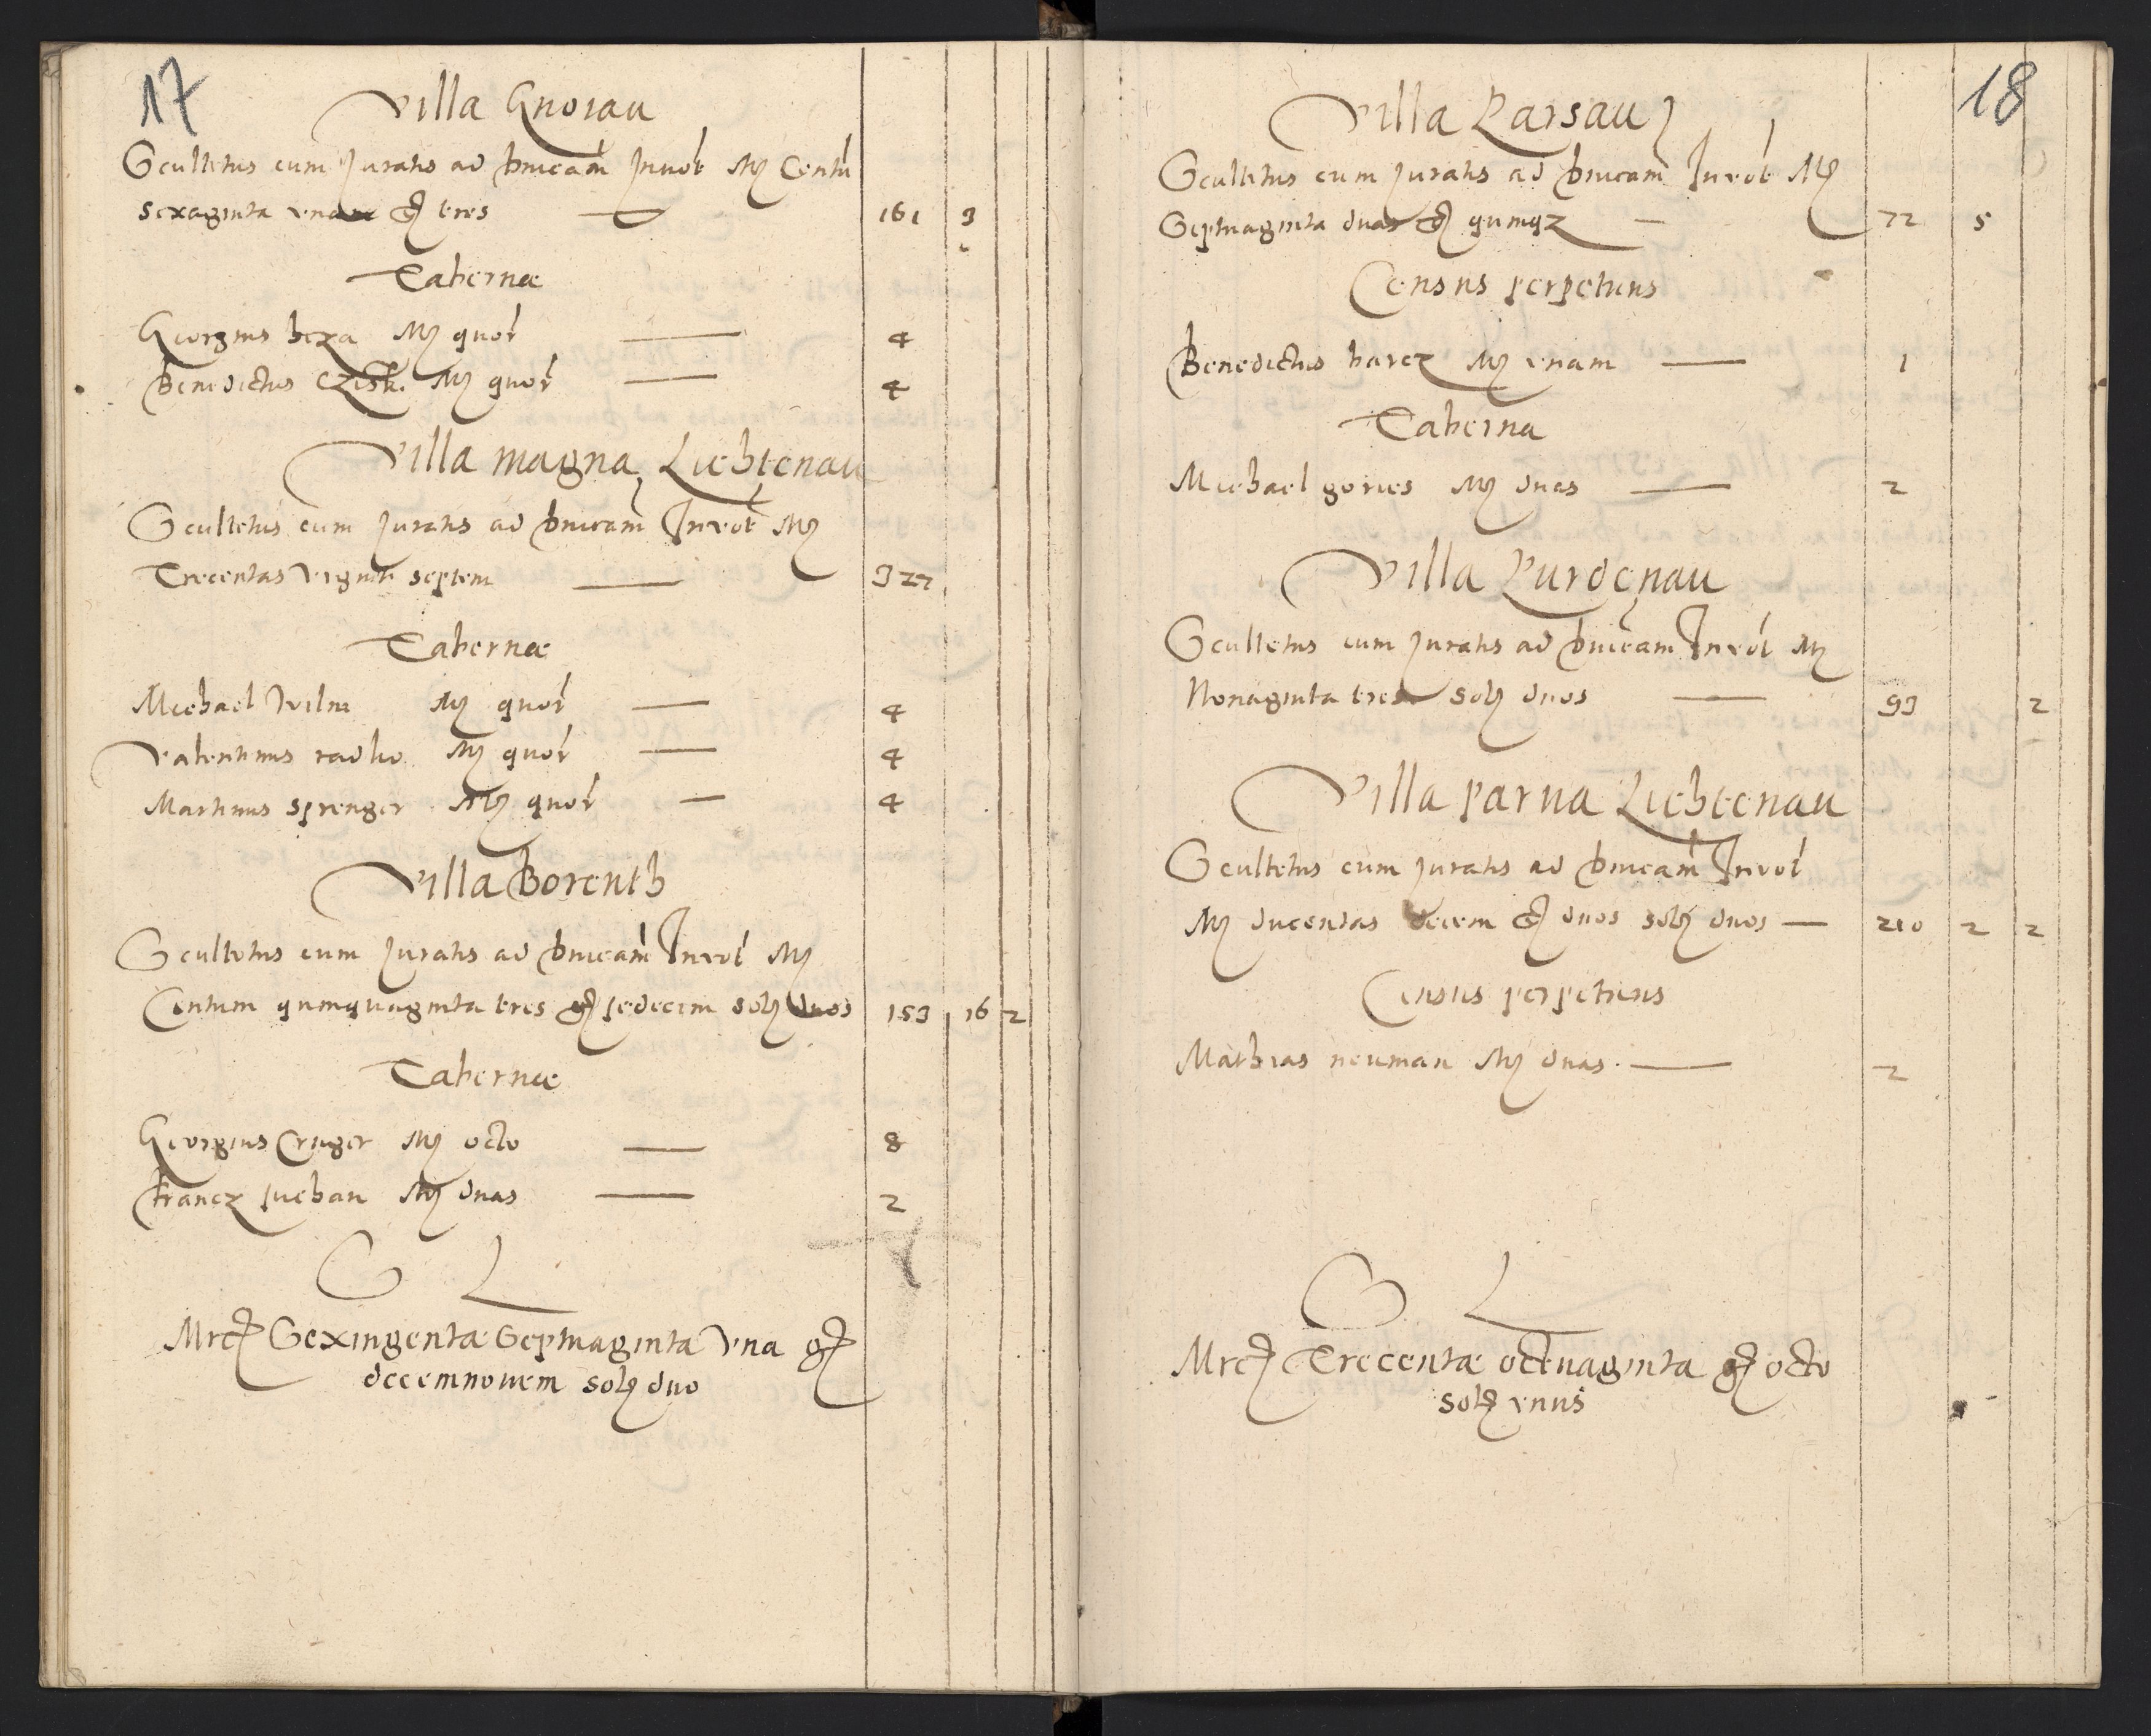 17
Villa Gnoiau
Scultetus cum Juratis ad bnicam Inuõt Mr Centu
sexaginta vnam gr tres — 161 3
Tabernæ
Georgius hexa Mr quor — 4
Benedictus Czisk. Mr quor — 4
Villa magna Liechtenau
Scultetus cum Juratis ad bnicam Inuõt Mr
Trecentas viginti septem — 327
Tabernæ
Michael Wilm Mr quor — 4
Valentinus radko Mr quor — 4
Martinus sprenger Mr quor — 4
Villa Borenth
Scultetus cum Juratis ad bnicam Inuõt Mr
Centum quinquaginta tres gr sedecim solz duos 153 16 2
Tabernæ
Georgius Cruger Mr octo — 8
Francz Juchan Mr duas — 2
S L
Mrcz Sexingentæ Septuaginta vna gr
decemnouem solz duo
18
Villa Parsau
Scultetus cum Juratis ad bnicam Inuõt Mr
Septuaginta duas gr quinqz — 72 5
Census perpetuus
Benedictus barcz Mr vnam — 1
Taberna
Michael gories Mr duas — 2
Villa Purdenau
Scultetus cum Juratis ad bnicam Inuõt Mr
Nonaginta tres solz duos — 93 2
Villa parua Liechtenau
Scultetus cum Juratis ad bnicam Inuõt
Mr ducentas decem gr duos solz duos — 210 2 2
Census perpetuus
Mathias neuman Mr duas. — 2
S L
Mrcz Trecentæ octuaginta gr octo
solz vnus